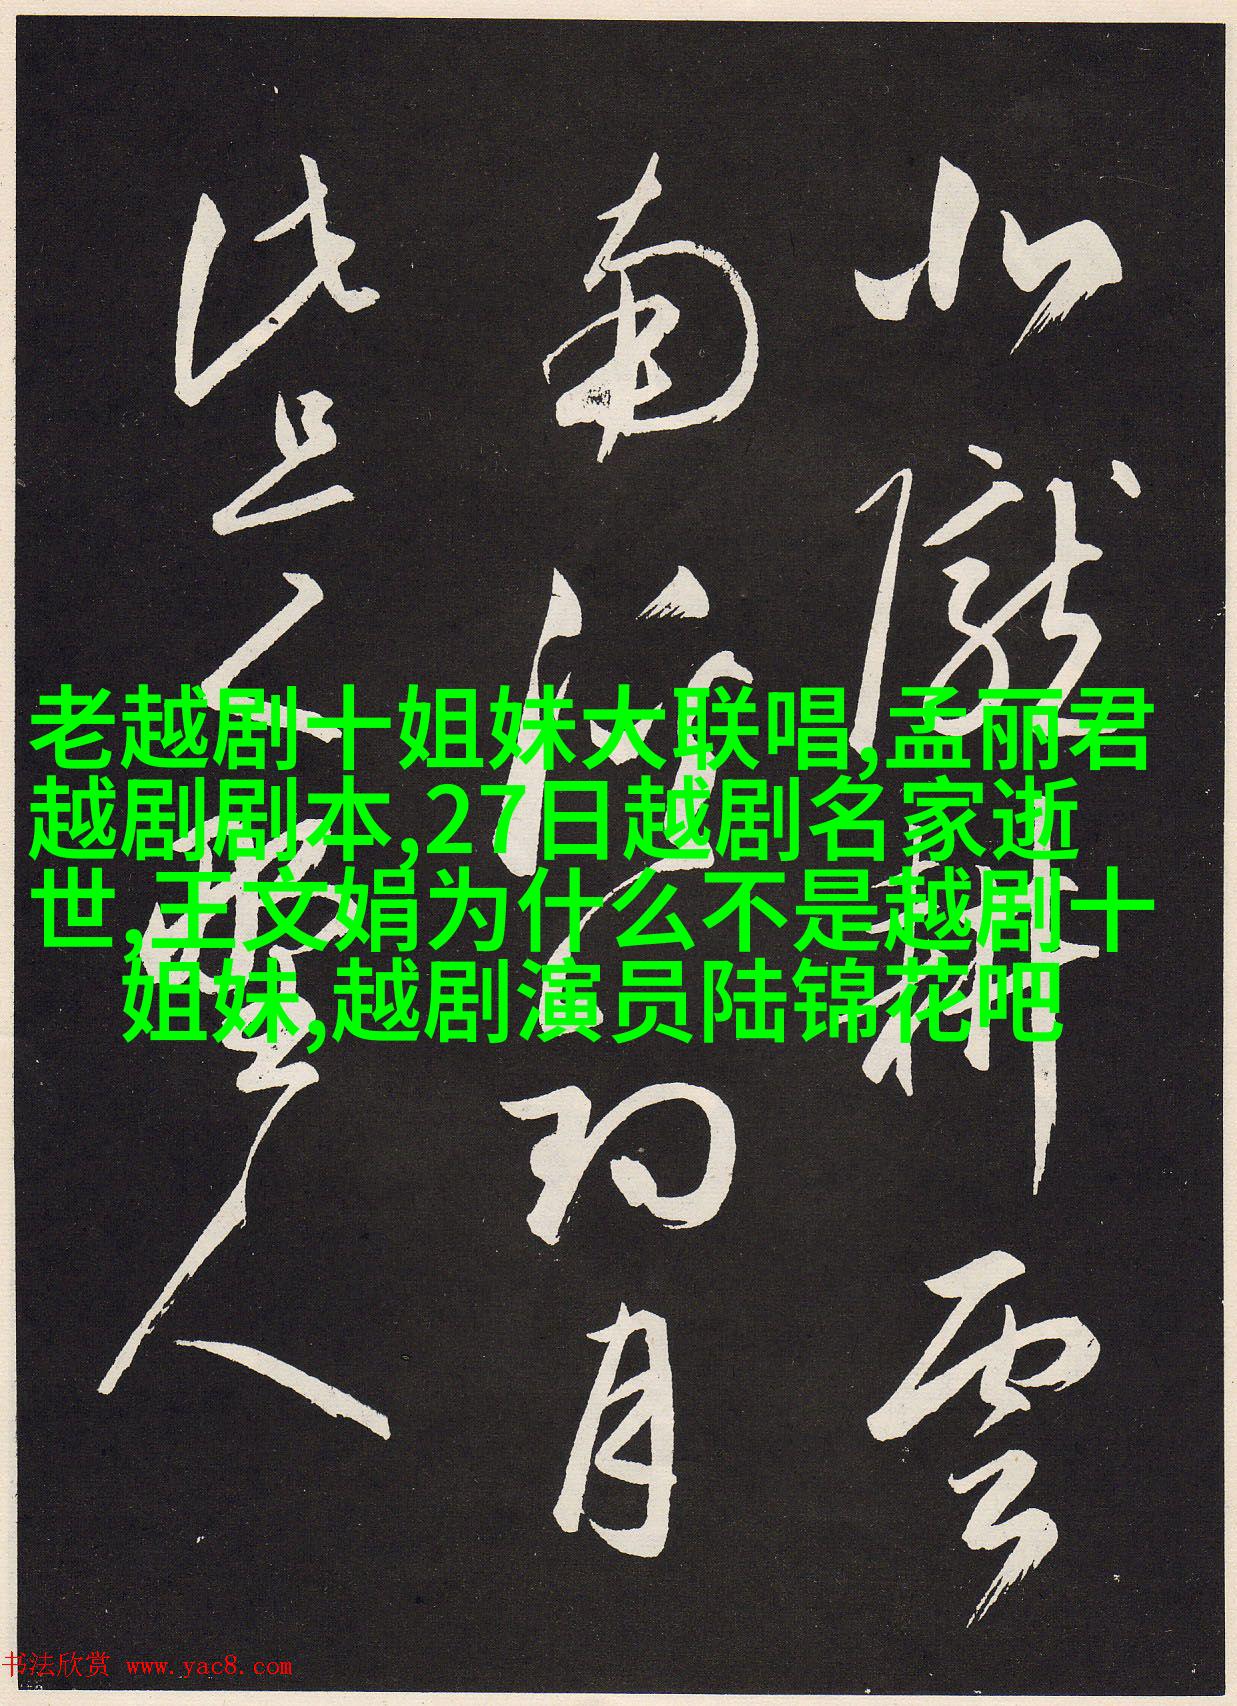 北隴耕雲
南溪釣月
此是野人
老越剧十姐妹大联唱,孟丽君
越剧剧本,27日越剧名家逝
世,王文娟为什么不是越剧十
姐妹,越剧演员陆锦花吧
书法欣赏 www.yac8.com